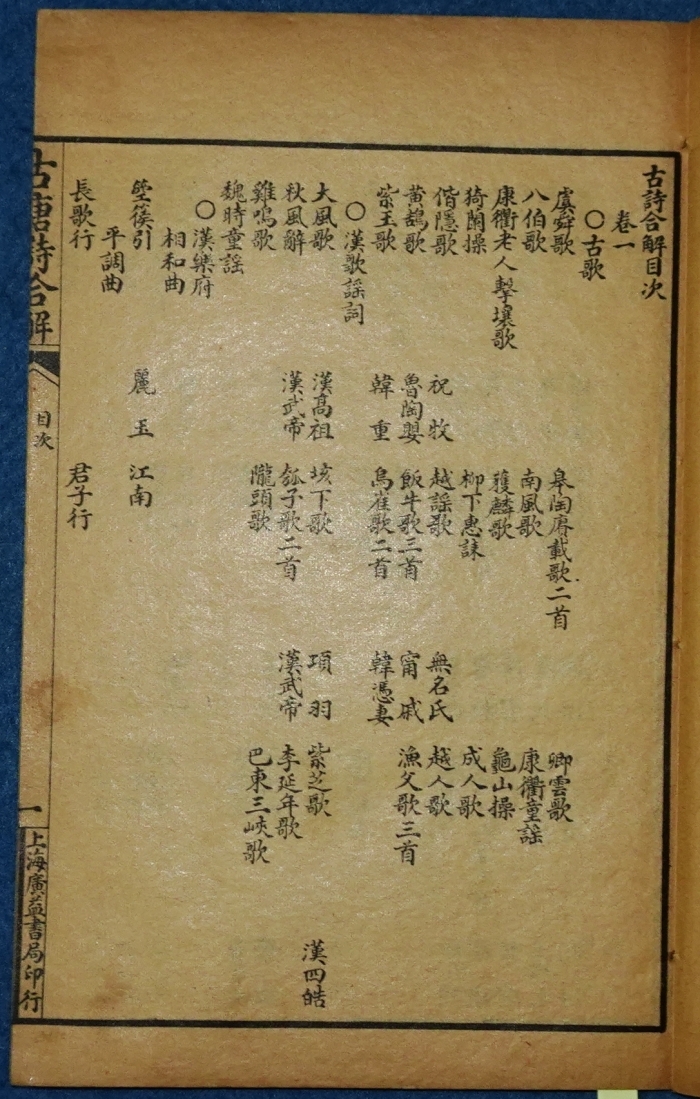 古詩合解目次
卷一
〇古歌
虞舜歌 皋陶賡載歌二首 卿雲歌
八伯歌 南風歌 康衢童謠
康衢老人擊壤歌 獲麟歌 龜山操
猗蘭操 柳下惠誄 成人歌
偕隱歌 祝牧 越謠歌 無名氏 越人歌
黃鵠歌 魯陶嬰 飯牛歌三首 甯戚 漁父歌三首
紫玉歌 韓重 烏雀歌二首 韓憑妻
〇漢歌謠詞
大風歌 漢高祖 垓下歌 項羽 紫芝歌 漢四皓
秋風辭 漢武帝 瓠子歌二首 漢武帝 李延年歌
雞鳴歌 隴頭歌 巴東三峽歌
魏時童謠
〇漢樂府
相和曲
箜篌引 麗玉 江南
平調曲
長歌行 君子行
古唐詩合解 目次 一 上海廣益書局印行